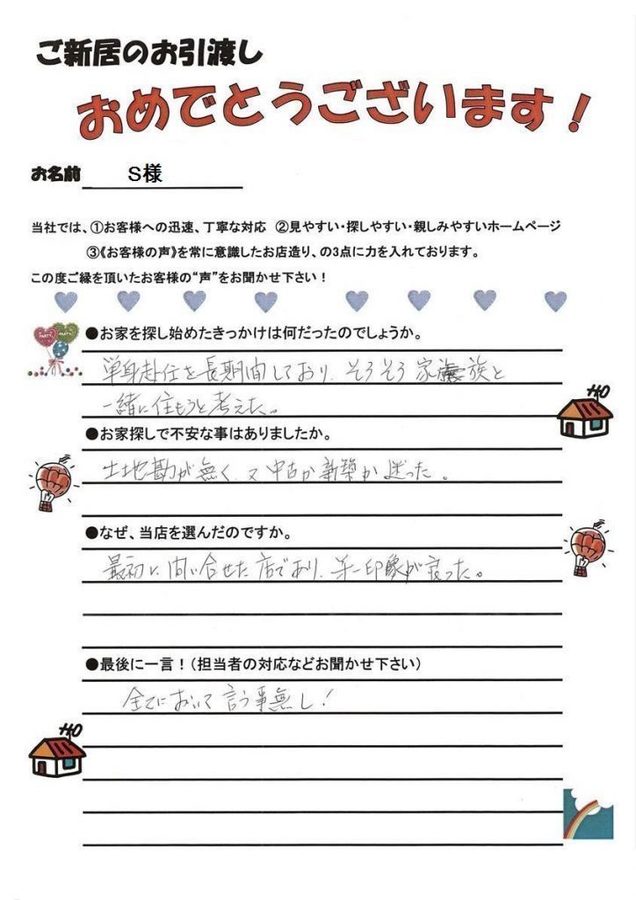 ご新居のお引渡し
おめでとうございます！
お名前 S様
当社では、①お客様への迅速、丁寧な対応 ②見やすい・探しやすい・親しみやすいホームページ
③《お客様の声》を常に意識したお店造り、の3点に力を入れております。
この度ご縁を頂いたお客様の“声”をお聞かせ下さい！
●お家を探し始めたきっかけは何だったのでしょうか。
単身赴任を長期間しており、そろそろ家族と
一緒に住もうと考えた。
●お家探しで不安な事はありましたか。
土地勘が無く又中古か新築か迷った。
●なぜ、当店を選んだのですか。
最初に問い合せた店であり、第一印象が良かった。
●最後に一言！(担当者の対応などお聞かせ下さい)
全てにおいて言う事無し！